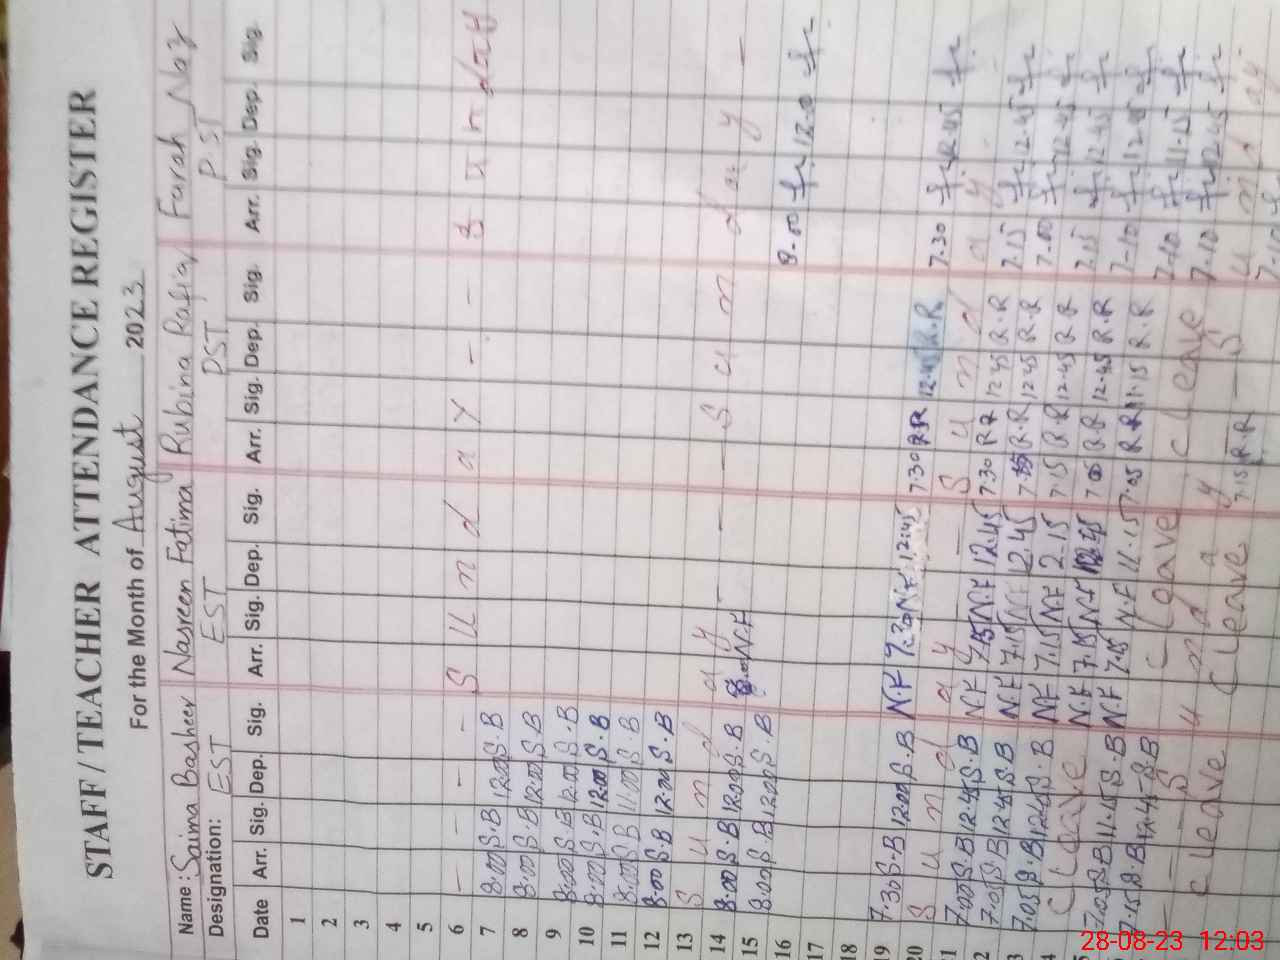 STAFF / TEACHER ATTENDANCE REGISTER
For the Month of August 2023
Name: Saima Basheer Nasreen Fatima Rubina Rafiq Farah Naz
Designation: EST EST PST P.ST
Date Arr. Sig. Dep. Sig. Arr. Sig. Dep. Sig. Arr. Sig. Dep. Sig. Arr. Sig. Dep. Sig.
1
2
3
4
5
6 - - - - S u n d a y - - S u n day
7 8:00 S.B 12:00 S.B
8 8:00 S.B 12:00 S.B
9 8:00 S.B 12:00 S.B
10 8:00 S.B 12:00 S.B
11 8:00 S.B 11:00 S.B
12 8:00 S.B 12:00 S.B
13 S u n d a y - - - S u n d a y -
14 8:00 S.B 12:00 S.B N.F
15 8:00 S.B 12:00 S.B
16 8-00 12.00
17
18
19 7.30 S.B 12:00 S.B N.F 7.30 N.F 12:45 7.30 R.R 12.45 R.R
20 S u n d a y - S u n d a y 7.30 12.45
21 7:00 S.B 12.45 S.B N.F 7.15 N.F 12.45 7.30 R.R 12 45 R.R
2 7:05 S.B 12.45 S.B N.F 7.15 N.F 12.45 R.R 12.45 R.R 7.15 12.45
3 7.05 S.B 12.45 S.B N.F 7.15 N.F 2.15 7.15 R.R 12.45 R.R 7.00 12.45
4 C Leave N.F 7.15 N.F 12.45 R.R 12.45 R.R 7.15 12.45
7.05 S.B 11.15 S.B N.F 7.15 N.F 11.15 7.05 R.R 11.15 R.R 7-10 12.45
7.15 S.B 12.45 S.B C Leave C Leave 7.10 11.15
- - S u n d a y - S u n d ay 7.10 12.45
C Leave C Leave 7.15 R.R 7.10
28-08-23 12:03